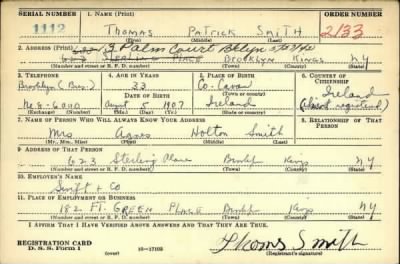 SERIAL NUMBER 1. NAME (Print) ORDER NUMBER
1112 Thomas Patrick Smith 2133
(First) (Middle) (Last)
2. ADDRESS (Print) 9 Palm Court Bklyn
623 Sterling PLACE Brooklyn Kings NY
(Number and street or R. F. D. number) (Town) (County) (State)
3. TELEPHONE 4. AGE IN YEARS 5. PLACE OF BIRTH 6. COUNTRY OF CITIZENSHIP
Brooklyn (Bus.) 33 Co. Cavan Ireland
DATE OF BIRTH (Town or county)
Ne 8-6000 August 5 1907 Ireland (Alien registered)
(Exchange) (Number) (Mo.) (Day) (Yr.) (State or country)
7. NAME OF PERSON WHO WILL ALWAYS KNOW YOUR ADDRESS 8. RELATIONSHIP OF THAT PERSON
Mrs Agnes Holton Smith
(Mr., Mrs., Miss) (First) (Middle) (Last)
9. ADDRESS OF THAT PERSON
623 Sterling Place Brooklyn Kings NY
(Number and street or R. F. D. number) (Town) (County) (State)
10. EMPLOYER'S NAME
Swift + Co
11. PLACE OF EMPLOYMENT OR BUSINESS
182 FT. GREEN PLACE Brooklyn Kings NY
(Number and street or R. F. D. number) (Town) (County) (State)
I AFFIRM THAT I HAVE VERIFIED ABOVE ANSWERS AND THAT THEY ARE TRUE.
REGISTRATION CARD
D. S. S. Form 1 (over) 16-17105 Thomas Smith
(Registrant's signature)